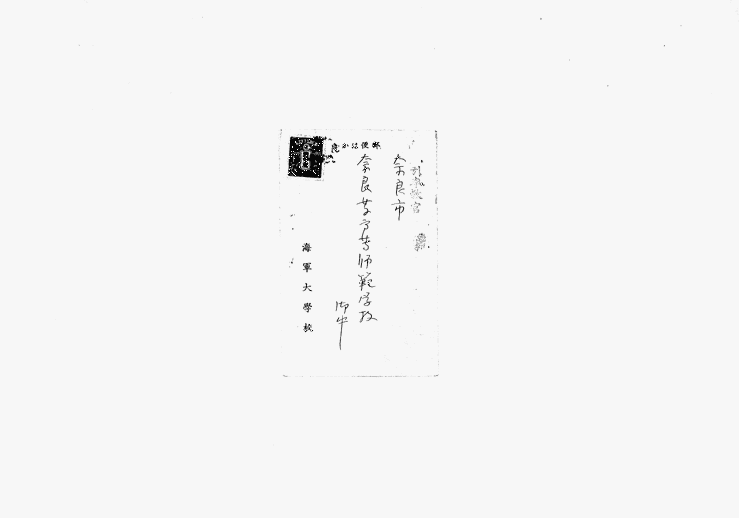 郵便はかき
奈良市
奈良女子高等師範学校
御中
海軍大學校